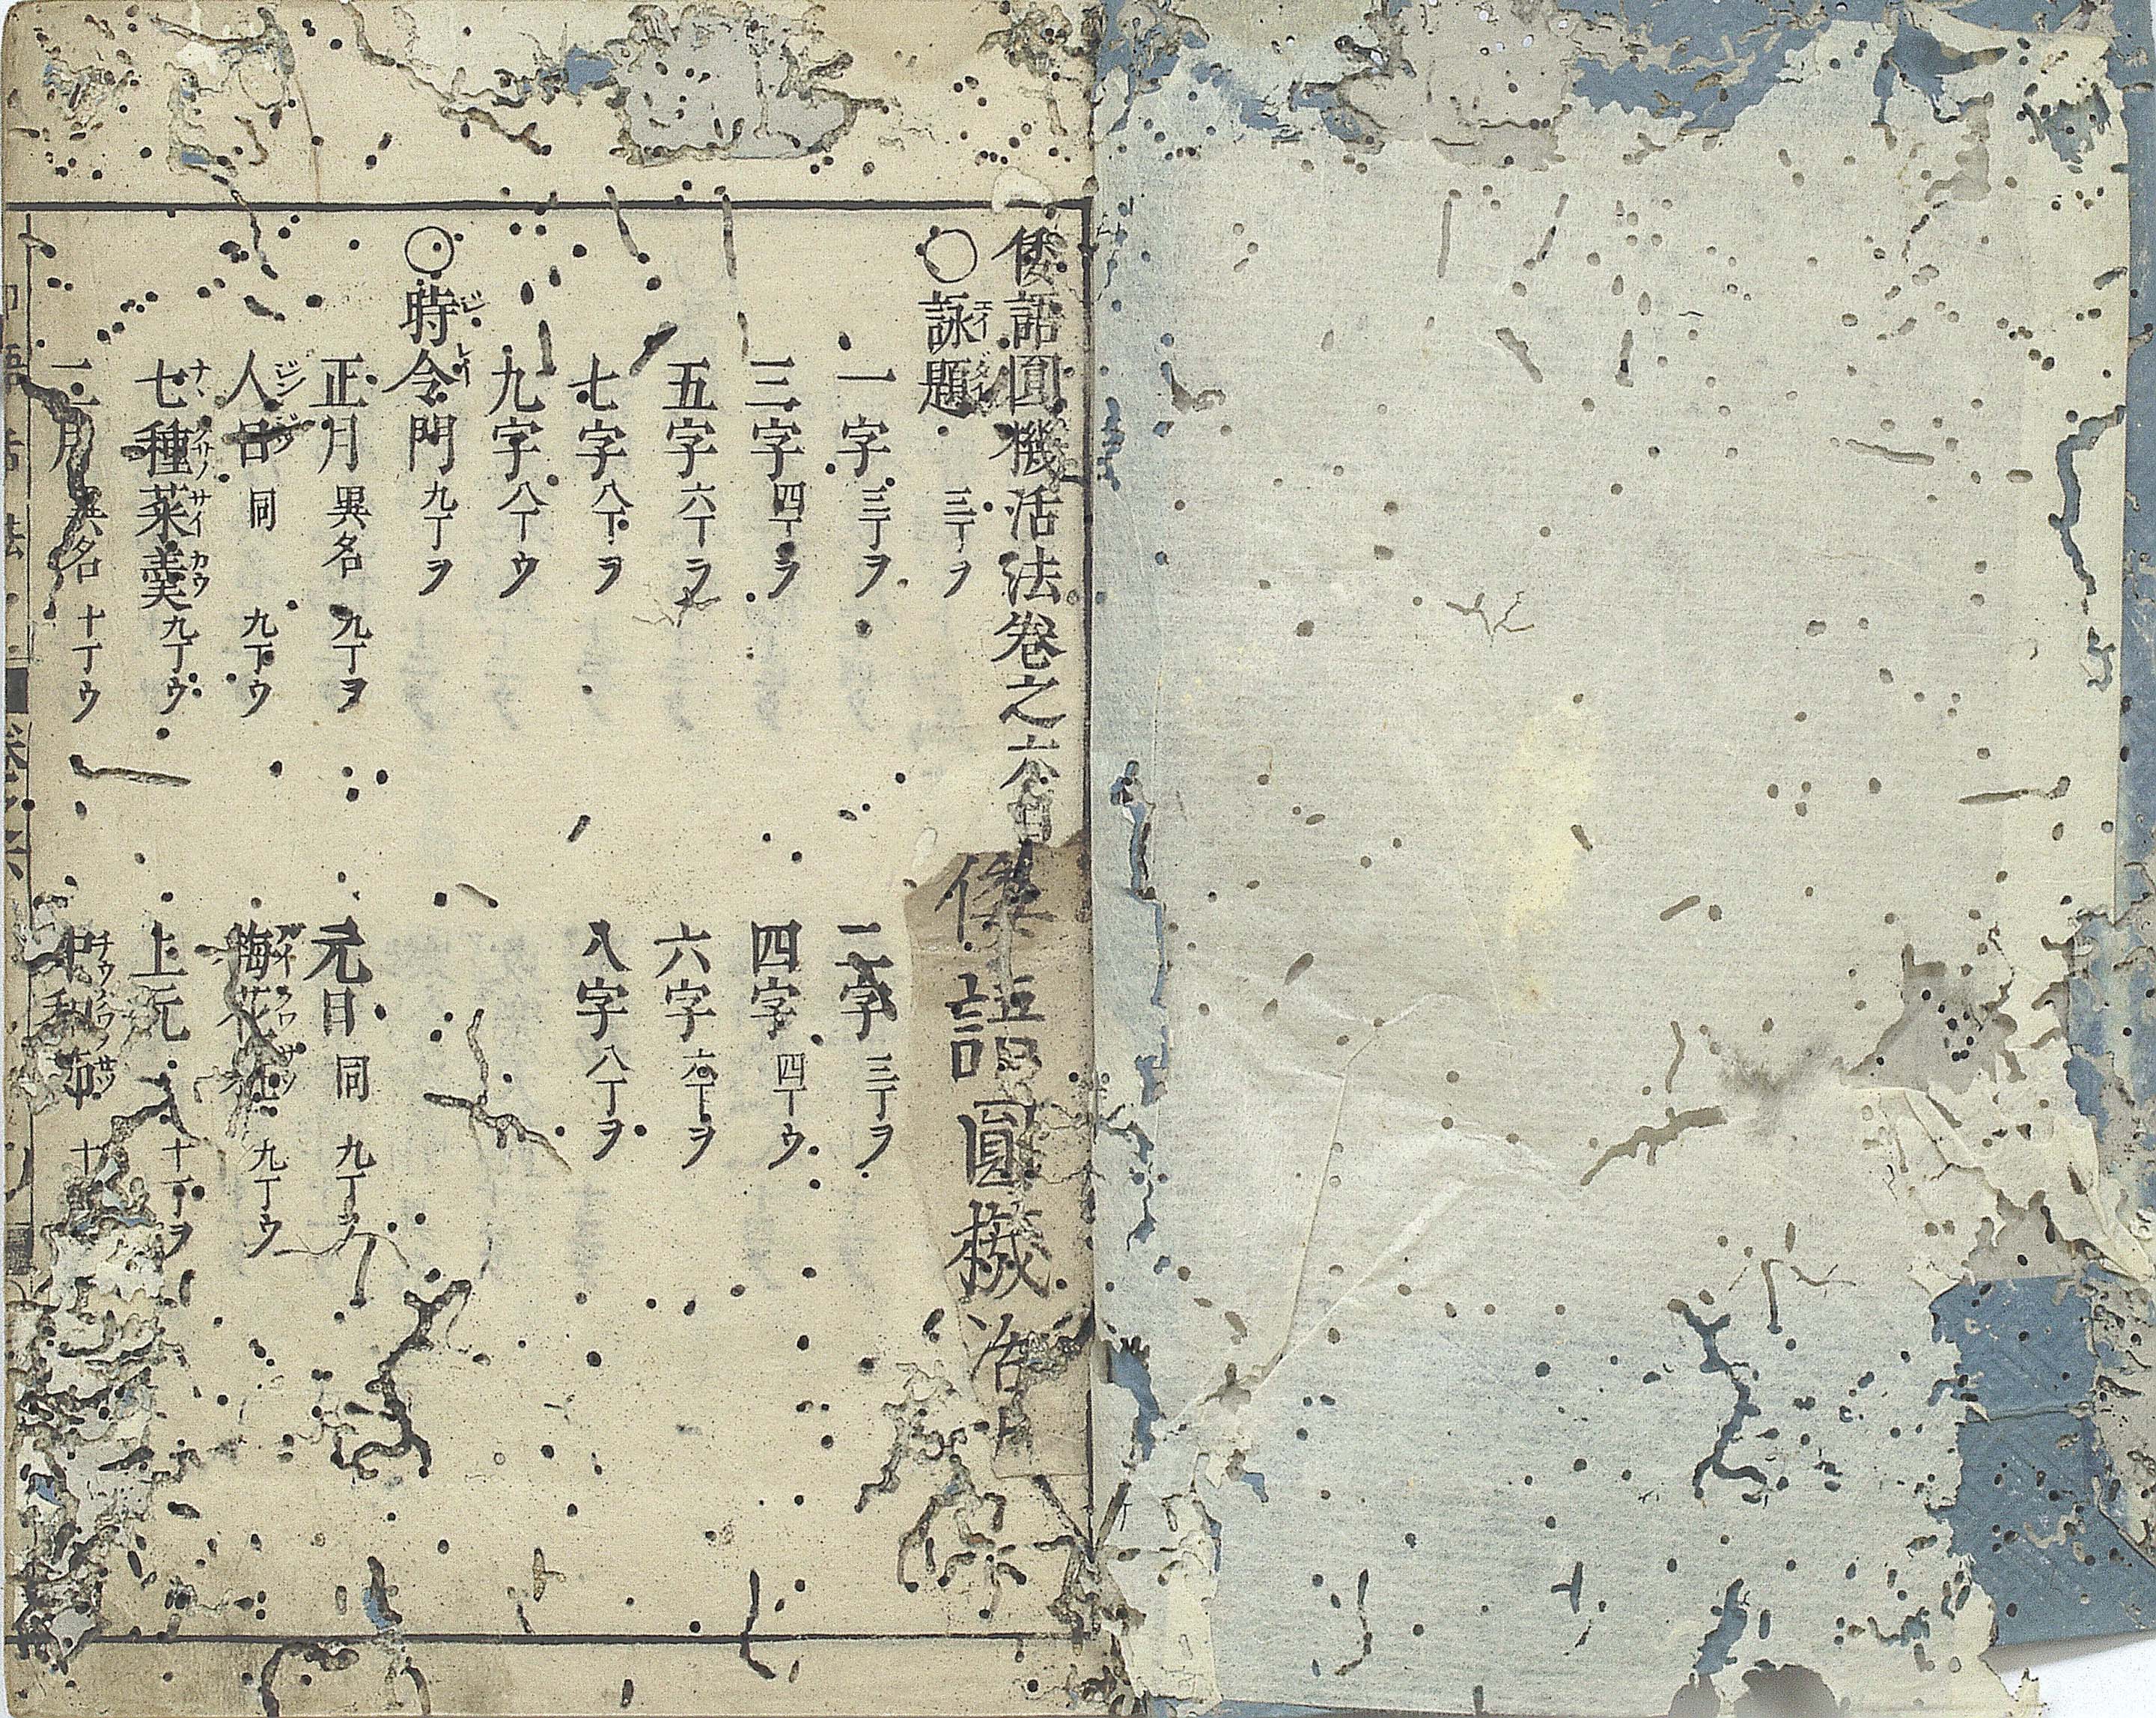 倭語圓機活法卷之六目
倭語圓機活
○詠題 三丁ヲ
一字 三丁ヲ 二字 三丁ヲ
三字 四丁ヲ 四字 四丁ウ
五字 六丁ヲ 六字 六丁ヲ
七字 八丁ヲ 八字 八丁ヲ
九字 八丁ウ
○時令門 九丁ヲ
正月 異名 九丁ヲ 元日 同 九丁ヲ
人日 同 九丁ウ 梅花 九丁ウ
七種菜羹 九丁ウ 上元 十一丁ヲ
二月 異名 十丁ウ 中和 十